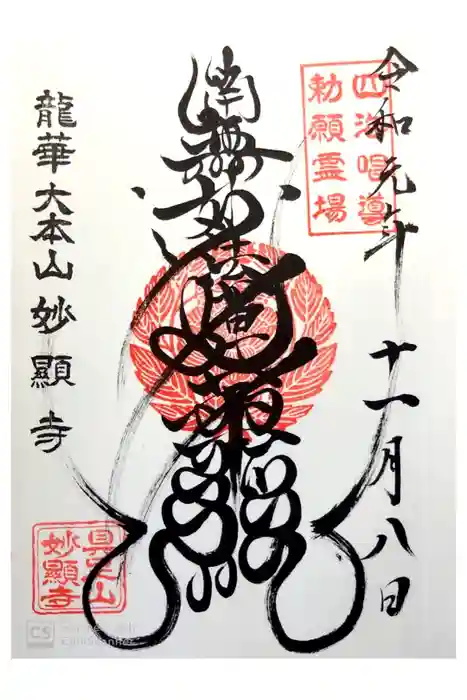 令和元年 十一月八日
四海唱導
勅願霊場
南無妙法蓮華經
龍華大本山妙顯寺
具足山
妙顯寺
CS CamScanner